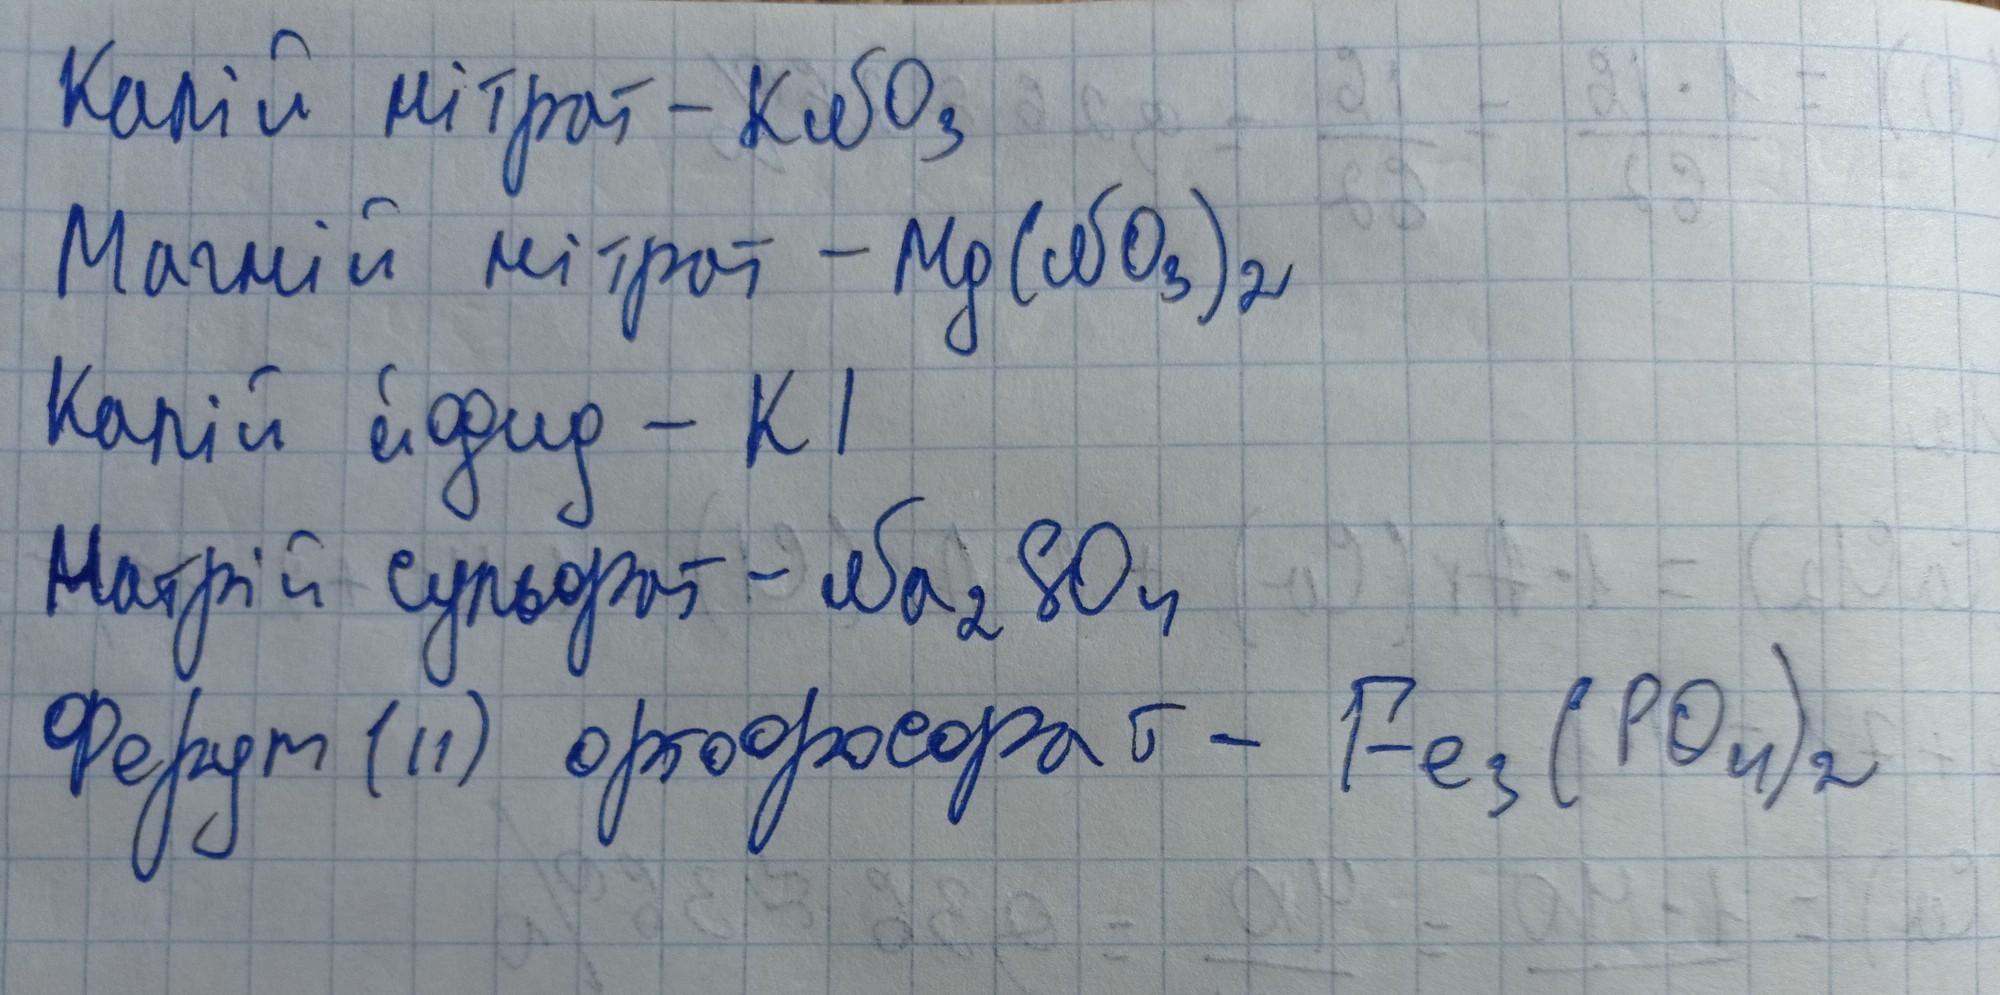 Калій нітрат - KNO3
Магній нітрат - Mg(NO3)2
Калій йодид - KI
Натрій сульфат - Na2SO4
Ферум (II) ортофосфат - Fe3(PO4)2